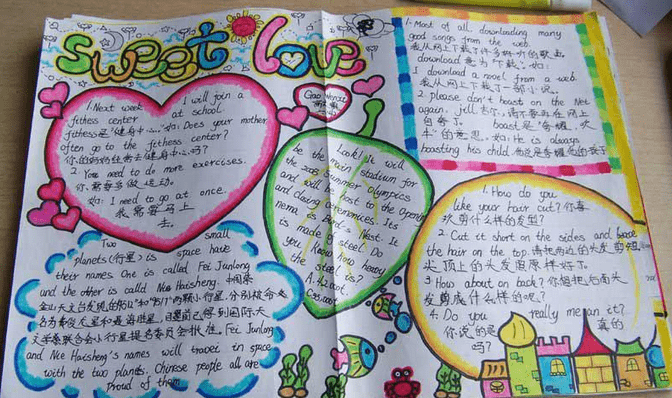 sweet love
1. Next week I will join a
fitness center at school
fitness是"健身中心". 如: Does your mother
often go to the fitness center?
你的妈妈经常去健身中心吗?
2. You need to do more exercises.
你需要多做运动.
如: I need to go at once.
我需要马上
去.
Two small
planets (行星) in space have
their names One is called Fei Junlong
and the other is called Nie Haisheng.
Fei Junlong
and Nie Haisheng's names will travel in space
with the two planets. Chinese people all are
proud of them
Look! It will
be the main stadium for
the 2008 Summer Olympics
and will be host to the Opening
and Closing ceremonies. Its
name is Bird's Nest. It
is made of steel. Do
you know how heavy
the steel is?
A. 42,000t.
1. Most of all downloading many
good songs from the web.
我从网上下载了许多好听的歌曲
download 意为"下载". 如:
I download a novel from a web.
我从网上下载了一部小说.
2. please don't boast on the Net
again, jill
boast是"夸耀,吹
牛"的意思. 如: He is always
boasting his child.
1. How do you
like your hair cut? 你喜
欢剪什么样的发型?
2. Cut it short on the sides and
the hair on the top. 请把两边的头发剪短
头顶上的头发照原样好了.
3. How about on back? 你想把后面头
发剪成什么样的呢?
4. Do you really mean it?
你说的是 真的
吗?